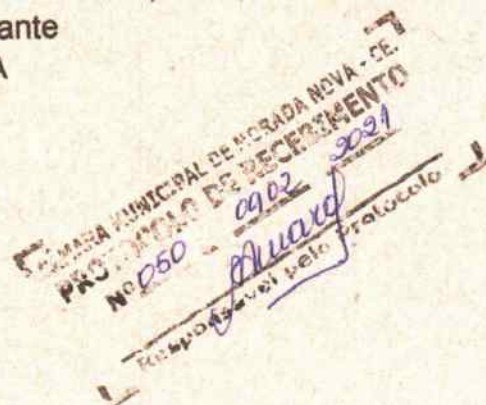 ante
A
CÂMARA MUNICIPAL DE MORADA NOVA - CE.
PROTOCOLO DE RECEBIMENTO
Nº 050 09 02 2021
Responsável pelo Protocolo